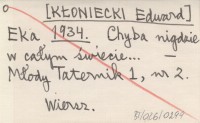 [KŁONIECKI Edward]
Eka 1934. Chyba nigdzie
w całym świecie... —
Młody Taternik 1, nr 2.
Wiersz.